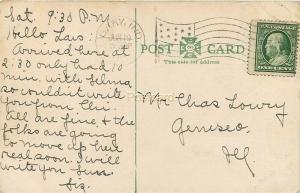 Sat. 9:30 P.M.
Hello Lars:
Arrived here at
2:30 only had 10
min. with Selma
so couldn't write
you from Chi.
All are fine & the
folks are going
to move up here
real soon. I will
write you Sun.
POST CARD
This side for address
Mr Chas Lowry
Geneseo
Ill
ONE CENT